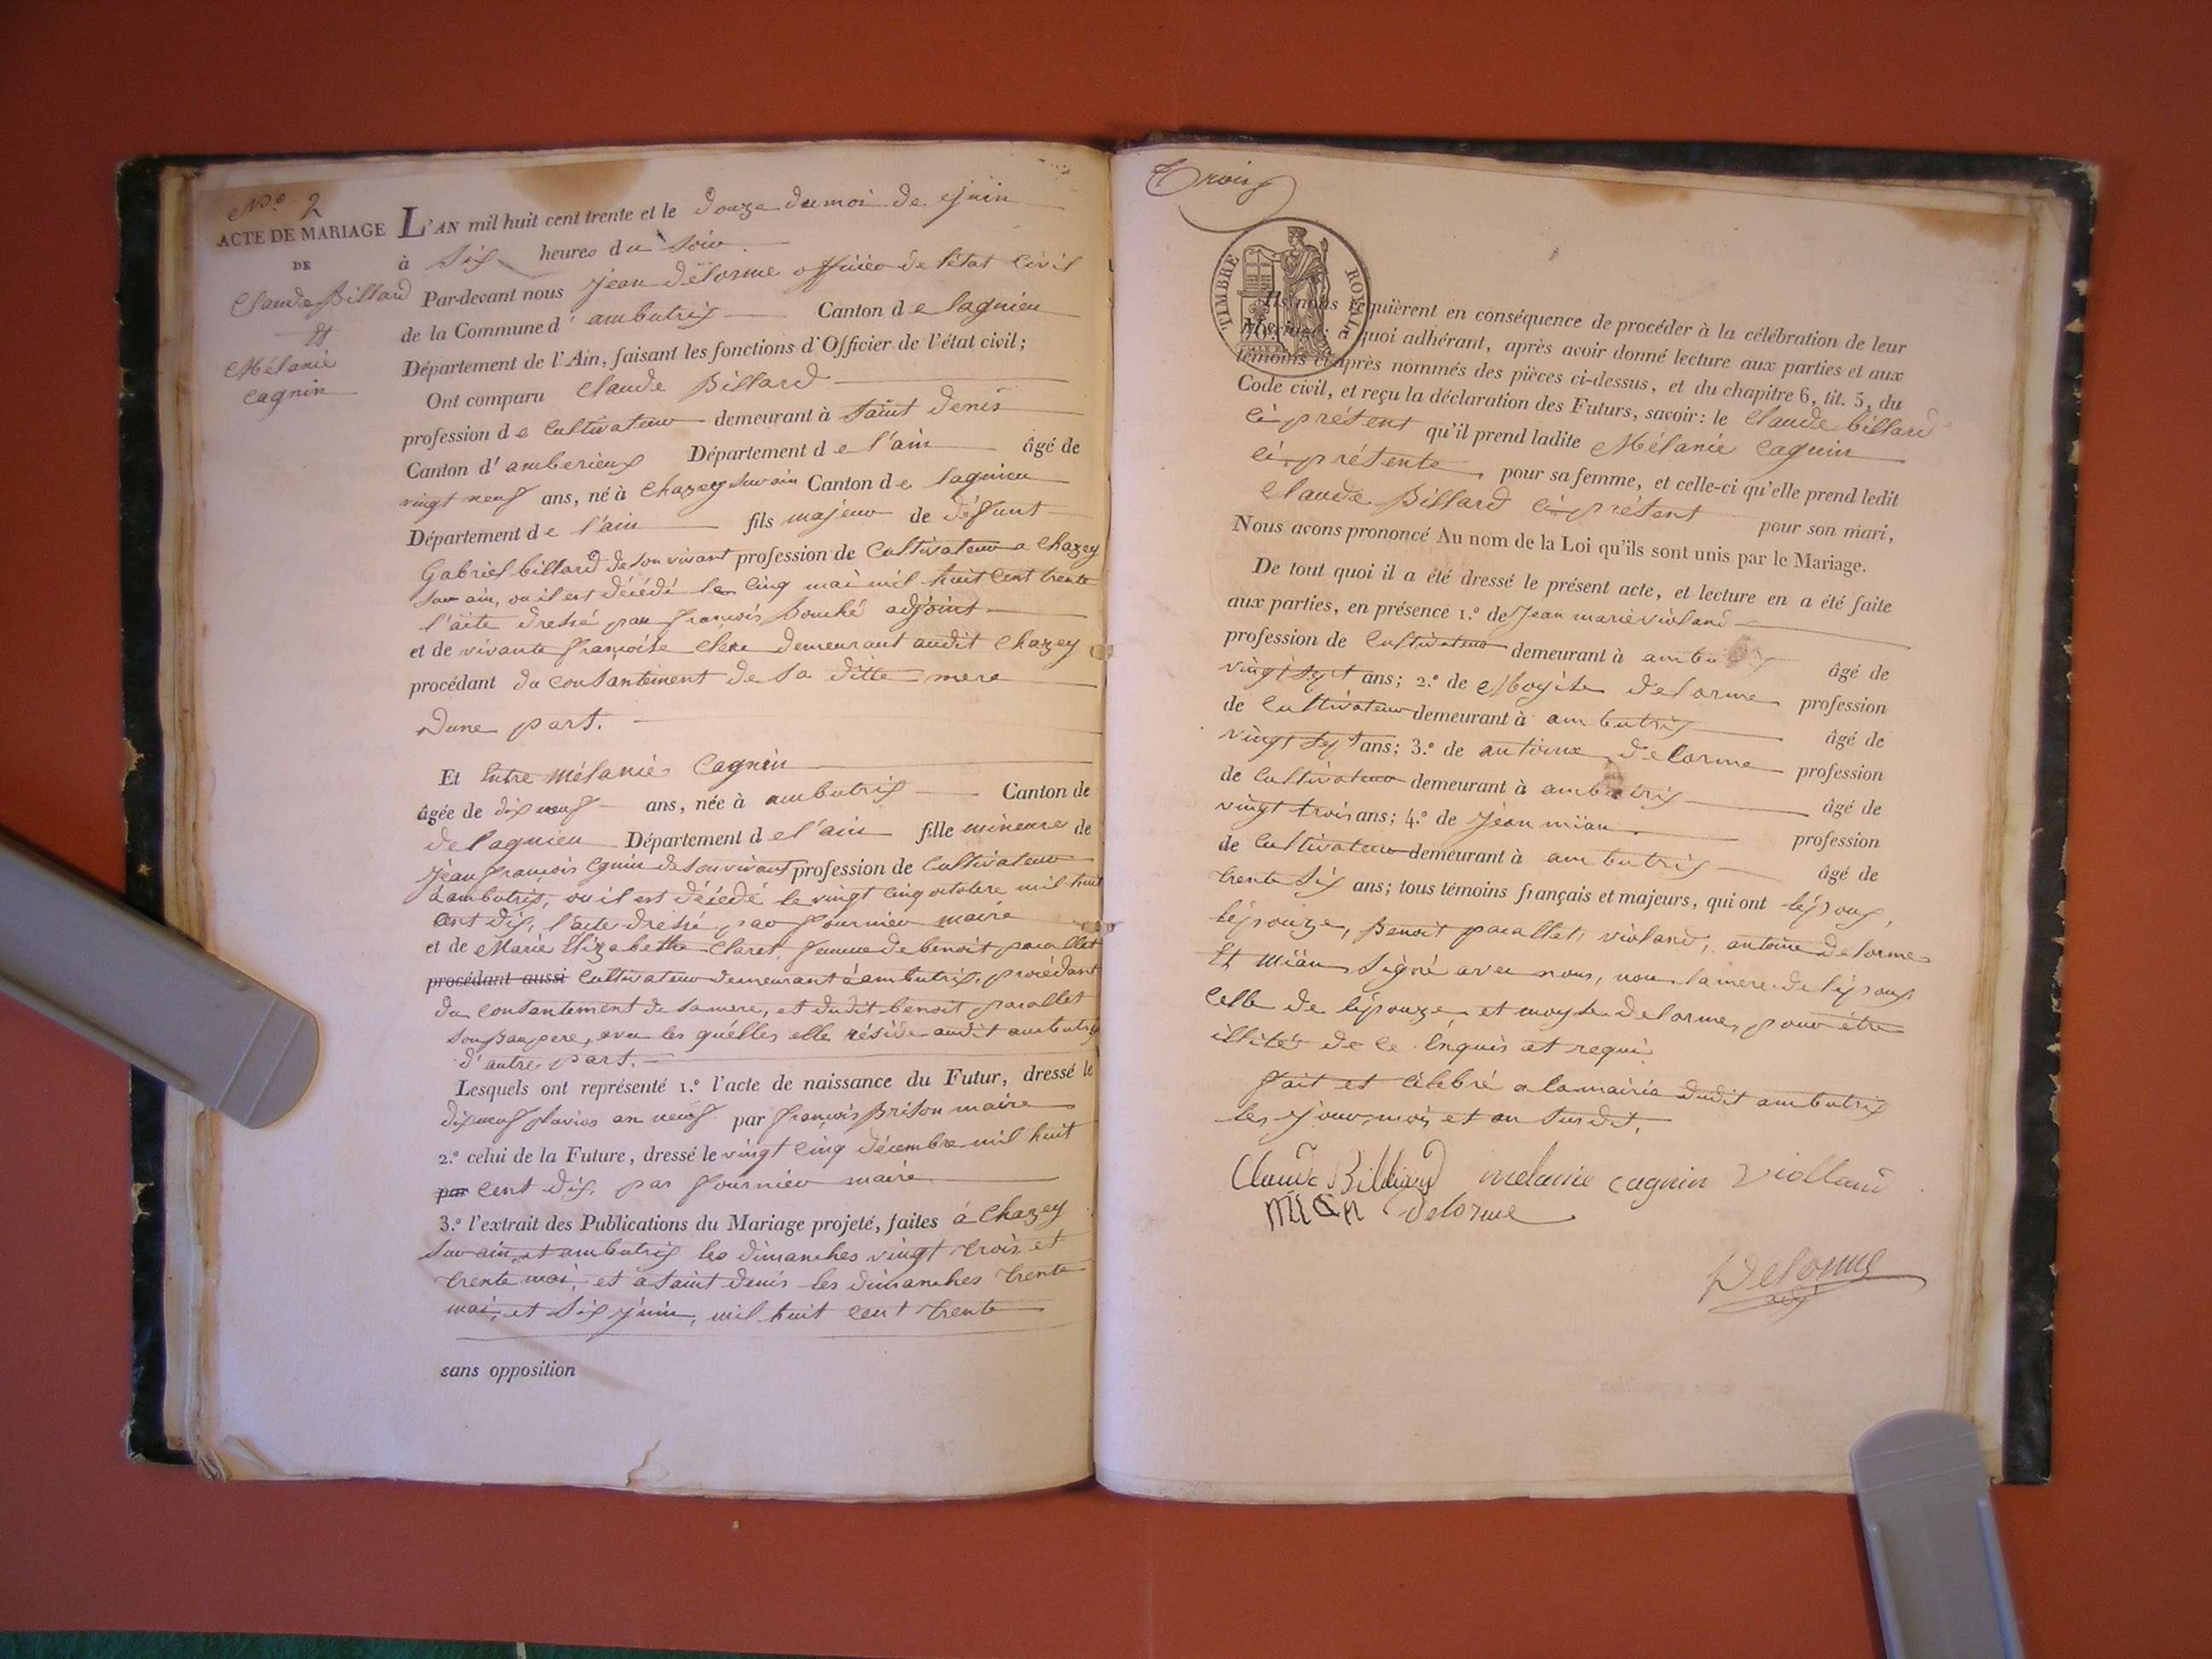 N.º 2
ACTE DE MARIAGE
DE
Claude Billard
Et
Mélanie
Cagnin
L'AN mil huit cent trente et le douze du moi de juin
à Six heures du soir.
Par-devant nous jean delorme officier de l'état Civil
de la Commune d'ambutrix Canton de lagnieu
Département de l'Ain, faisant les fonctions d'Officier de l'état civil;
Ont comparu Claude Billard
profession de Cultivateur demeurant à saint denis
Canton d'amberieux Département de l'ain âgé de
vingt neuf ans, né à Chazey sur ain Canton de lagnieu
Département de l'ain fils majeur de défunt
Gabriel billard de son vivant profession de Cultivateur a Chazey
sur ain, ou il est décédé le cinq mai mil huit cent trente
l'acte dressé par françois Bouché adjoint
et de vivante françoise demeurant audit Chazey
procédant du consantement de sa ditte mere
Dune part.
Et Entre Mélanie Cagnin
âgée de dix neuf ans, née à ambutrix Canton de
de lagnieu Département de l'ain fille mineure de
jean françois Cgnin de son vivant profession de Cultivateur
à ambutrix, ou il est décédé le vingt cinq octobre mil huit
cent dix, l'acte dressé par fournier maire
et de Marie Elizabethe Claret, femme de benoit pacallet
procédant aussi Cultivateur demeurant à ambutrix, procédant
du consantement de sa mere, et dudit benoit pacallet
son Baupere, avec les quélles elle réside audit ambutrix
d'autre part.
Lesquels ont représenté 1.º l'acte de naissance du Futur, dressé le
dix neuf pluvios an neuf par françois Brison maire
2.º celui de la Future, dressé le vingt cinq décembre mil huit
par cent dix, par fournier maire
3.º l'extrait des Publications du Mariage projeté, faites à Chazey
sur ain et ambutrix les dimanches vingt trois et
trente mai, et a saint denis les dimanches trente
mai, et six juin, mil huit cent trente
sans opposition
Trois
TIMBRE ROYAL
Ils nous requièrent en conséquence de procéder à la célébration de leur
Mariage: à quoi adhérant, après avoir donné lecture aux parties et aux
témoins ci-après nommés des pièces ci-dessus, et du chapitre 6, tit. 5, du
Code civil, et reçu la déclaration des Futurs, savoir: le Claude billard
ci-présent qu'il prend ladite Mélanie Cagnin
ci-présente pour sa femme, et celle-ci qu'elle prend ledit
Claude Billard ci-présent pour son mari,
Nous avons prononcé Au nom de la Loi qu'ils sont unis par le Mariage.
De tout quoi il a été dressé le présent acte, et lecture en a été faite
aux parties, en présence 1.º de Jean marie violand
profession de Cultivateur demeurant à ambutrix âgé de
vingt sept ans; 2.º de Moyse delorme profession
de Cultivateur demeurant à ambutrix âgé de
vingt sept ans; 3.º de antoine delorme profession
de Cultivateur demeurant à ambutrix âgé de
vingt trois ans; 4.º de Jean miân profession
de Cultivateur demeurant à ambutrix âgé de
trente six ans; tous témoins français et majeurs, qui ont léjoux,
léjouze, Benoit pacallet, violand, antoine delorme
Et miân Signé avec nous, non la mere de léjoux
Celle de léjouze, et moyse delorme, pour étre
illités de ce Enquis et requi
fait et célébré a la mairie dudit ambutrix
les jour, mois et an susdit.
Claude Billiard melanie cagnin Violland
MIAN delorme
Delorme